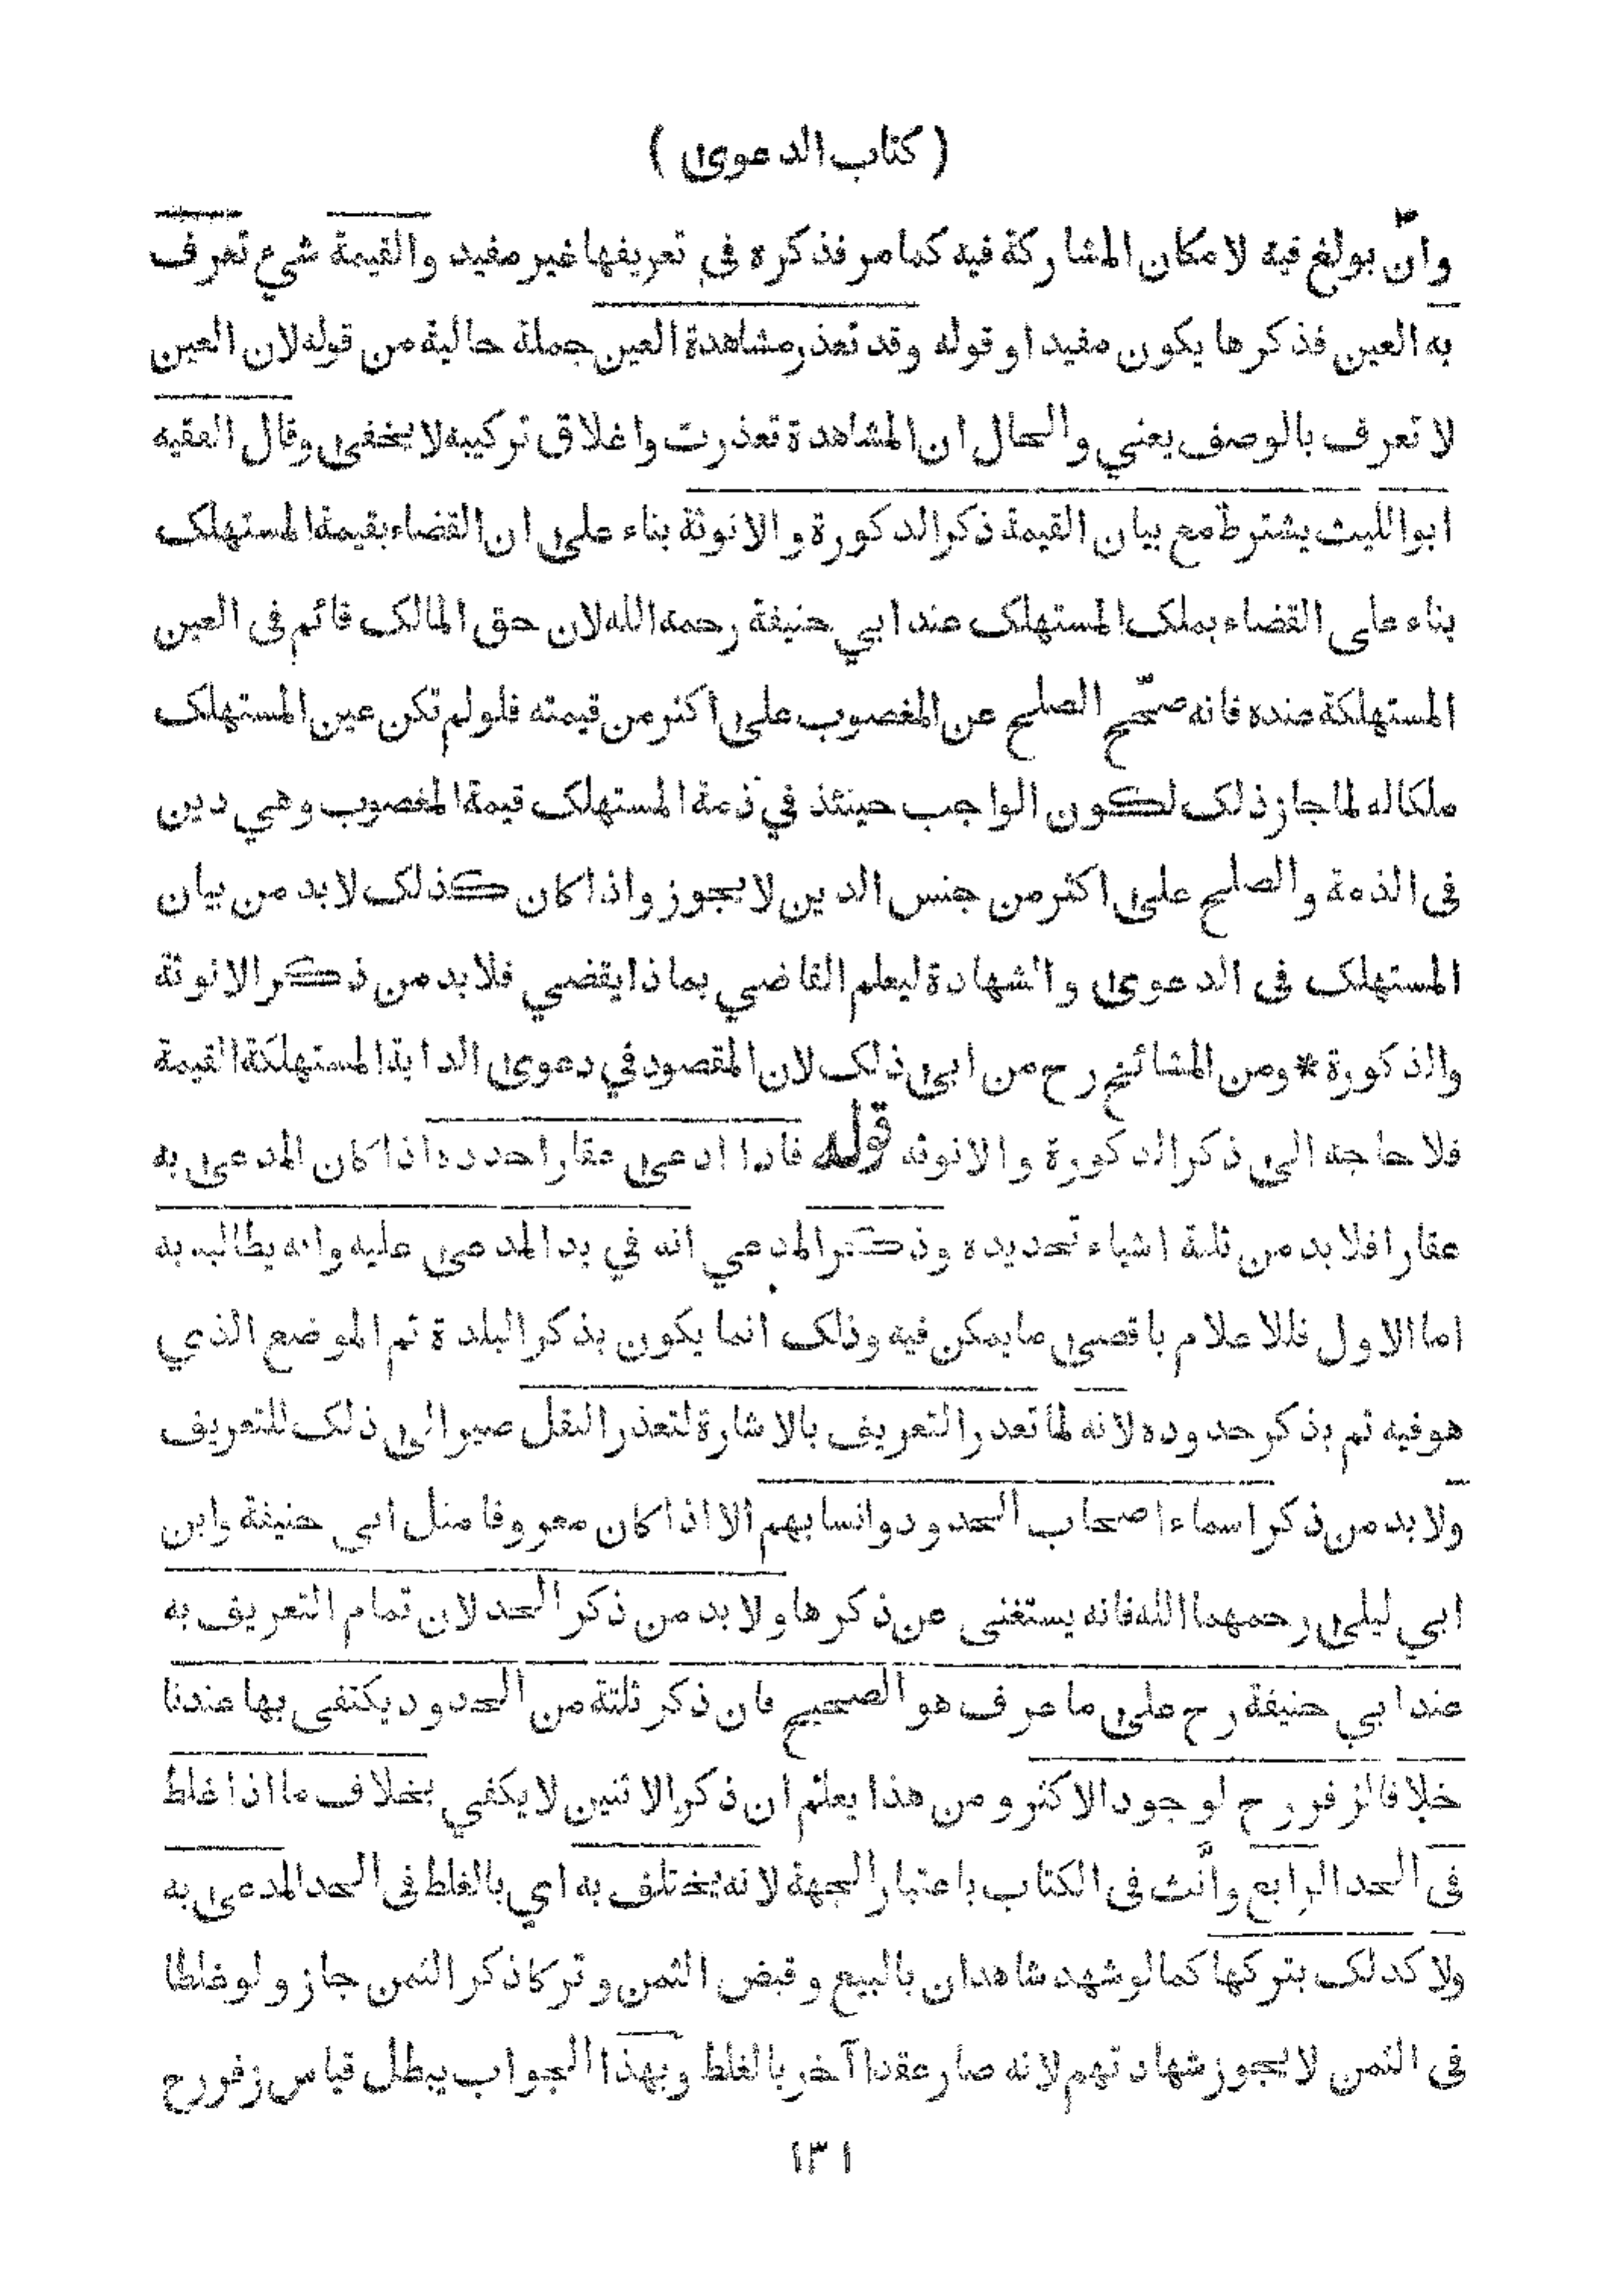 ( كتاب الدعوى )
وان بولغ فيه لا مكان المشاركة فيه كما مر فذكره في تعريفها غير مفيد والقيمة شيء تعرف
به العين فذكرها يكون مفيدا وقوله وقد تعذر مشاهدة العين جملة حالية من قوله لان العين
لا تعرف بالوصف يعني والحال ان المشاهدة تعذرت واغلاق تركيبه لا يخفى وقال الفقيه
ابو الليث يشترط مع بيان القيمة ذكر الذكورة والانوثة بناء على ان القضاء بقيمة المستهلك
بناء على القضاء بملك المستهلك عند ابي حنيفة رحمه الله لان حق المالك قائم في العين
المستهلكة عنده فانه صحّح الصلح عن المغصوب على اكثر من قيمته فلو لم تكن عين المستهلك
ملكا له لما جاز ذلك لكون الواجب حينئذ في ذمة المستهلك قيمة المغصوب وهي دين
في الذمة والصلح على اكثر من جنس الدين لا يجوز واذا كان كذلك لا بد من بيان
المستهلك في الدعوى والشهادة ليعلم القاضي بما ذا يقضي فلا بد من ذكر الانوثة
والذكورة * ومن المشائخ رح من ابى ذلك لان المقصود في دعوى الدابة المستهلكة القيمة
فلا حاجة الى ذكر الذكورة والانوثة قوله فاذا ادعى عقارا حدده اذا كان المدعى به
عقارا فلا بد من ثلثة اشياء تحديده وذكر المدعي انه في يد المدعى عليه وانه يطالبه به
اما الاول فللاعلام باقصى ما يمكن فيه وذلك انما يكون بذكر البلدة ثم الموضع الذي
هو فيه ثم بذكر حدوده لانه لما تعذر التعريف بالاشارة لتعذر النقل صير الى ذلك للتعريف
ولا بد من ذكر اسماء اصحاب الحدود وانسابهم الا اذا كان معروفا مثل ابي حنيفة وابن
ابي ليلى رحمهما الله فانه يستغنى عن ذكرها ولا بد من ذكر الحد لان تمام التعريف به
عند ابي حنيفة رح على ما عرف هو الصحيح فان ذكر ثلثة من الحدود يكتفى بها عندنا
خلافا لزفر رح لوجود الاكثر ومن هذا يعلم ان ذكر الاثنين لا يكفي بخلاف ما اذا غلط
في الحد الرابع وانّث في الكتاب باعتبار الجهة لانه يختلف به اي بالغلط في الحد المدعى به
ولا كذلك بتركها كما لو شهد شاهدان بالبيع وقبض الثمن وتركا ذكر الثمن جاز ولو غلطا
في الثمن لا يجوز شهادتهم لانه صار عقدا آخر بالغلط وبهذا الجواب يبطل قياس زفر رح
١٣١